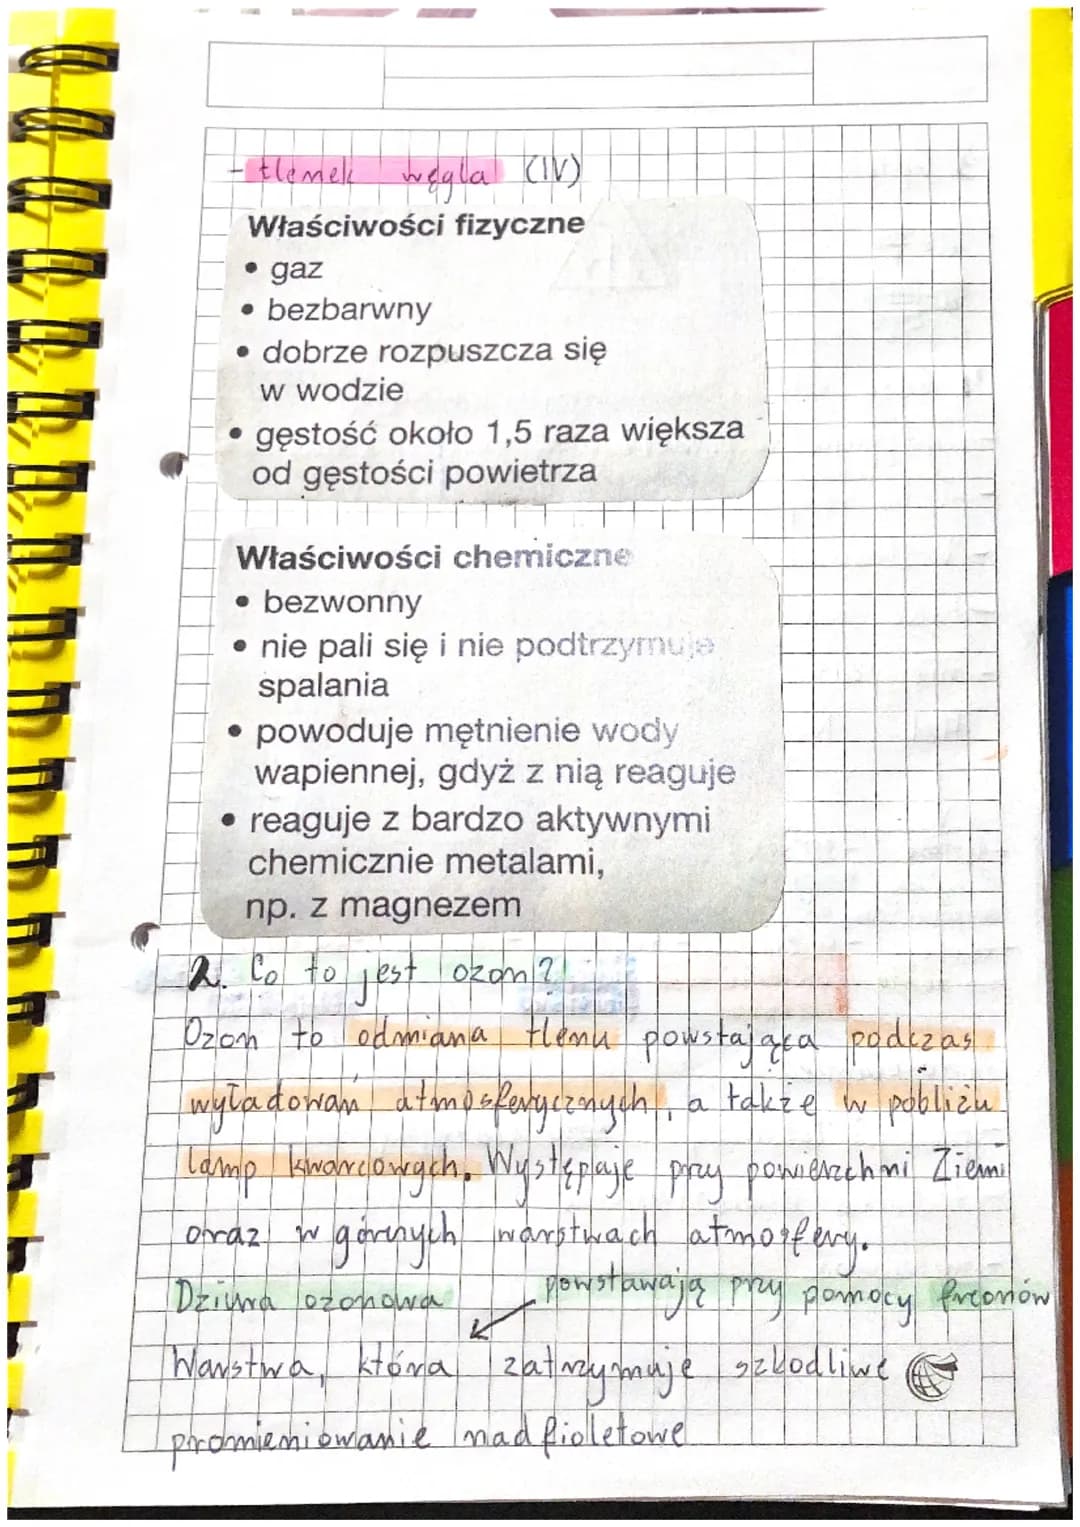 - tlenek węgla (IV)
Właściwości fizyczne
• gaz
• bezbarwny
• dobrze rozpuszcza się
w wodzie
• gęstość około 1,5 raza większa
od gęstości powietrza
Właściwości chemiczne
• bezwonny
• nie pali się i nie podtrzymuje
spalania
• powoduje mętnienie wody
wapiennej, gdyż z nią reaguje
• reaguje z bardzo aktywnymi
chemicznie metalami,
np. z magnezem
2. Co to jest ozon?
Ozon to odmiana tlenu powstająca podczas
wyładowań atmosferycznych, a także w pobliżu
lamp kwarcowych. Występuje przy powierzchni Ziemi
oraz w górnych warstwach atmosfery.
Dziura ozonowa powstawają przy pomocy freonów
Warstwa, która zatrzymuje szkodliwe
promieniowanie nadfioletowe